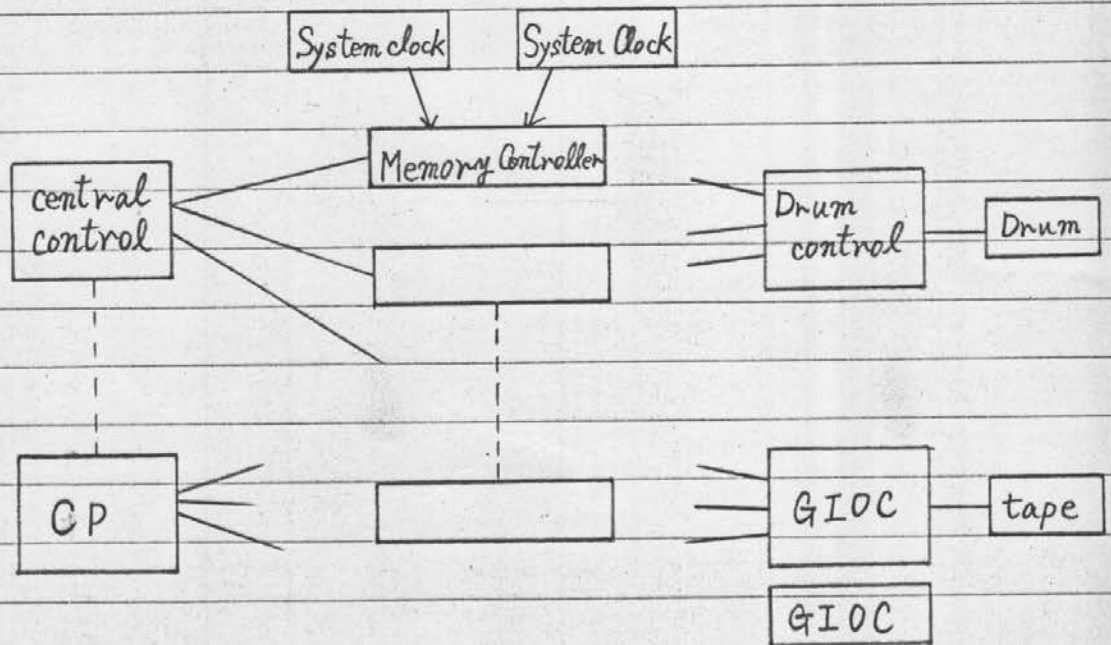 System clock
System Clock
Memory Controller
central
control
Drum
control
Drum
CP
GIOC
tape
GIOC